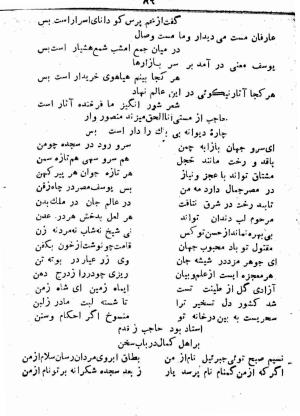 ۸۹
گفت از نعیم پرس کو دانای اسرار است بس
عارفان مست می دیدار وما مست وصال
در میان جمع امشب شمع هشیار است بس
یوسف معنی در آمد بر سر بازارها
هر کجا بینم هیاهوی خریدار است بس
هر کجا آثار نیکوئی در این عالم نهاد
شعر شور انگیز ما فرخنده آثار است
حاجب از مستی انا الحق میزند منصور وار
چارهٔ دیوانه بی باک را دار است بس
ای سرو جهان بازا به چمن
سرو رود در سجده چومن
باقد و رخت مانند خجل
هم سرو سهی هم تازه سمن
مشتاق تواند با عجز ونیاز
هر تازه جوان هر پیر کهن
در مصر جمال دارد مه من
بس یوسف مصر در چاه زقن
تابد رخت در شرق نتافت
در عالم جان در ملک بدن
مرحوم لب دندان تواند
هر لعل بدخش هر در عدن
بی بهره ماند از حسن تو کس
نی شیخ نه شاب نه مرد نه زن
مقتول تو باد محبوب جهان
قامت چو نوشت از خون بکفن
ای جوهر مزد در شیشه جان
وی زر عیار در بوته تن
هر معجزه ایست از علم وبیان
ریزی چو درر از درج دهن
آزادی گل از طینت تست
ایماه زمین ای شاه زمن
شد کشور دل تسخیر ترا
تا شسته لبت مادر ز لبن
سحریست به بین در خانه تو
منسوخ اگر احکام وسنن
استاد بود حاجب ز قدم
بر اهل کمال در باب سخن
نسیم صبح توئی جبرئیل نام از من
بطاق ابروی مردان رسان سلام از من
اگر که از من گمنام نام پرسد یار
ز بعد سجده شکرانه بر تو نام از من